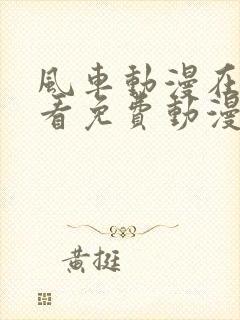 風車動漫在
看免費動漫
黃挺